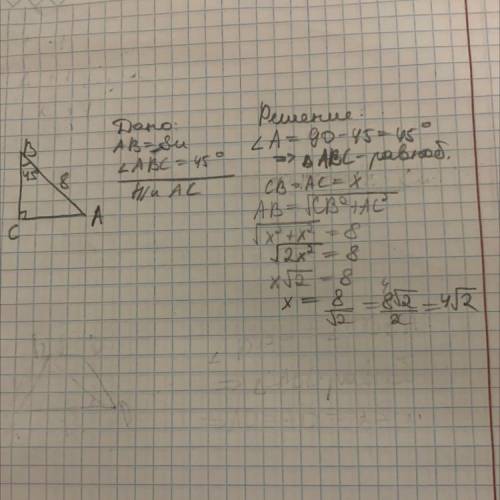 B
45
8
C
A
Дано:
AB = 8м
∠ABC = 45°
Н/и AC
Решение:
∠A = 90 - 45 = 45°
=> ΔABC - равноб.
CB = AC = x
AB = √CB² + AC²
√x² + x² = 8
√2x² = 8
x√2 = 8
x = 8/√2 = 8√2/2 = 4√2
4